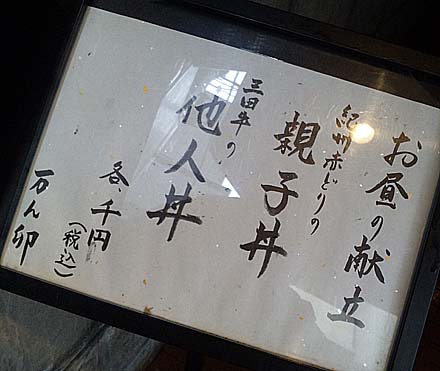 お昼の献立
紀州赤どりの
親子丼
三田牛の
他人丼
各、千円
(税込)
万ん卯